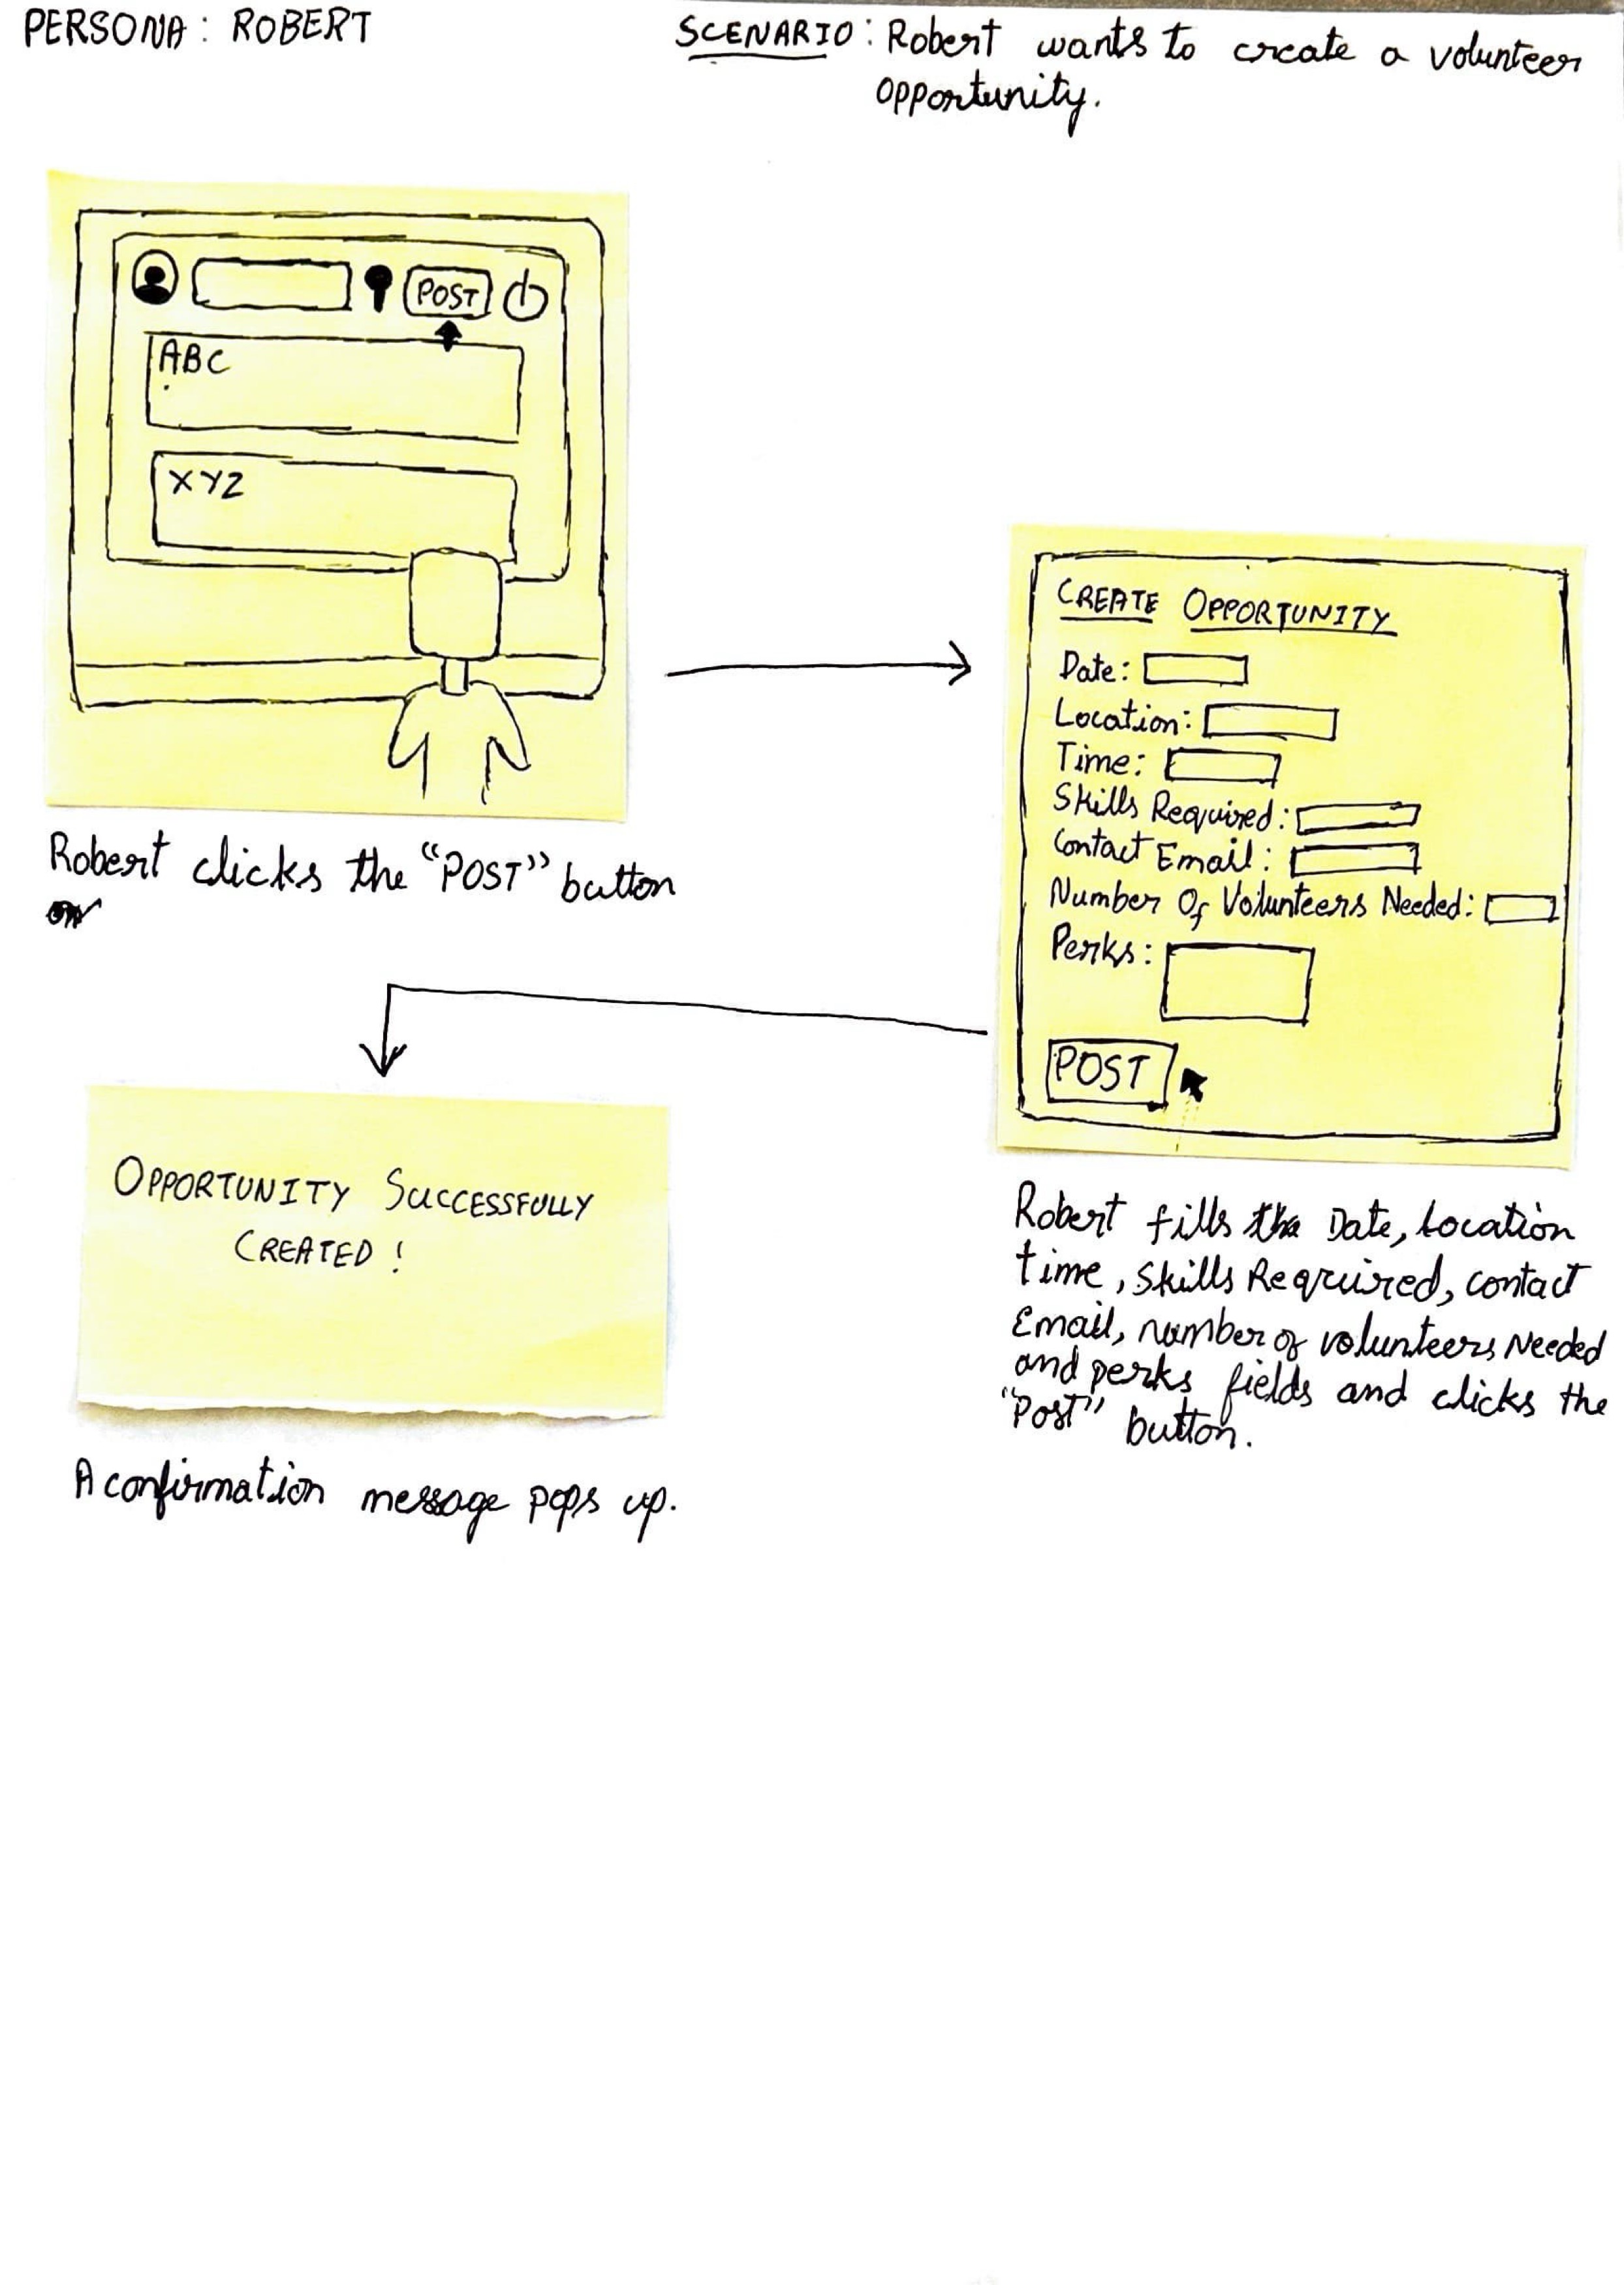 PERSONA: ROBERT
SCENARIO: Robert wants to create a volunteer
opportunity.
POST
ABC
XYZ
Robert clicks the "POST" button
CREATE OPPORTUNITY
Date:
Location:
Time:
Skills Required:
Contact Email:
Number Of Volunteers Needed:
Perks:
POST
Robert fills the Date, Location
time, Skills Required, contact
Email, number of volunteers Needed
and perks fields and clicks the
"Post" button.
OPPORTUNITY SUCCESSFULLY
CREATED!
A confirmation message pops up.